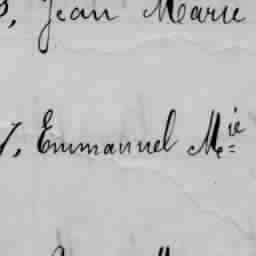 , Jean Marie
7, Emmanuel Mie